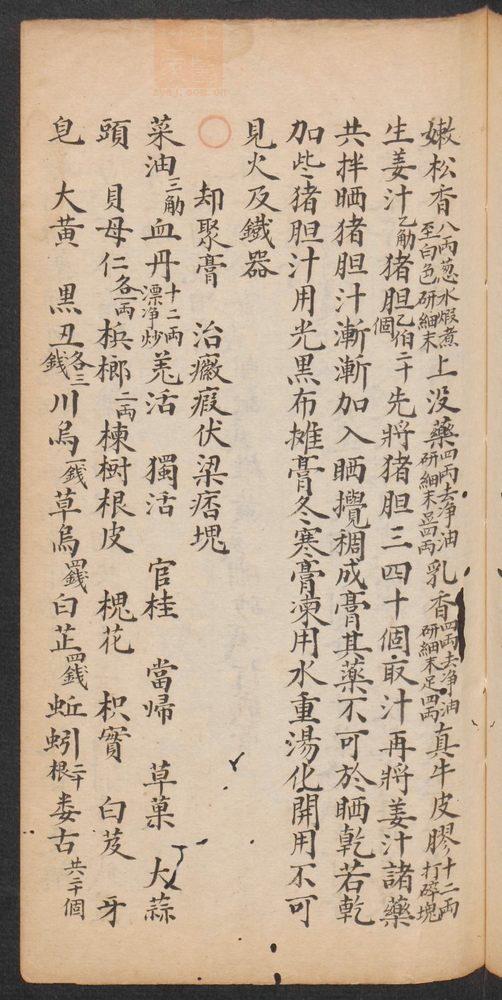 嫩松香八兩葱水煆煮至白色研細末上没藥四兩去净油研細末足四兩乳香四兩去净油研細末足四兩真牛皮膠十二兩打碎塊
生姜汁乙觔猪胆乙伯二十個先將猪胆三四十個取汁再將姜汁諸藥
共拌晒猪胆汁漸漸加入晒攪稠成膏其藥不可於晒乾若乾
加些猪胆汁用光黑布摊膏冬寒膏凍用水重湯化開用不可
見火及鐵器
○ 却聚膏 治癥瘕伏梁痞塊
菜油三觔血丹十二兩漂净炒羗活 獨活 官桂 當帰 草菓 大蒜
頭 貝母仁各一兩梹榔二兩楝樹根皮 槐花 枳實 白芨 牙
皂 大黄 黒丑各三錢川烏一錢草烏四錢白芷四錢蚯蚓二十根娄古共二十個